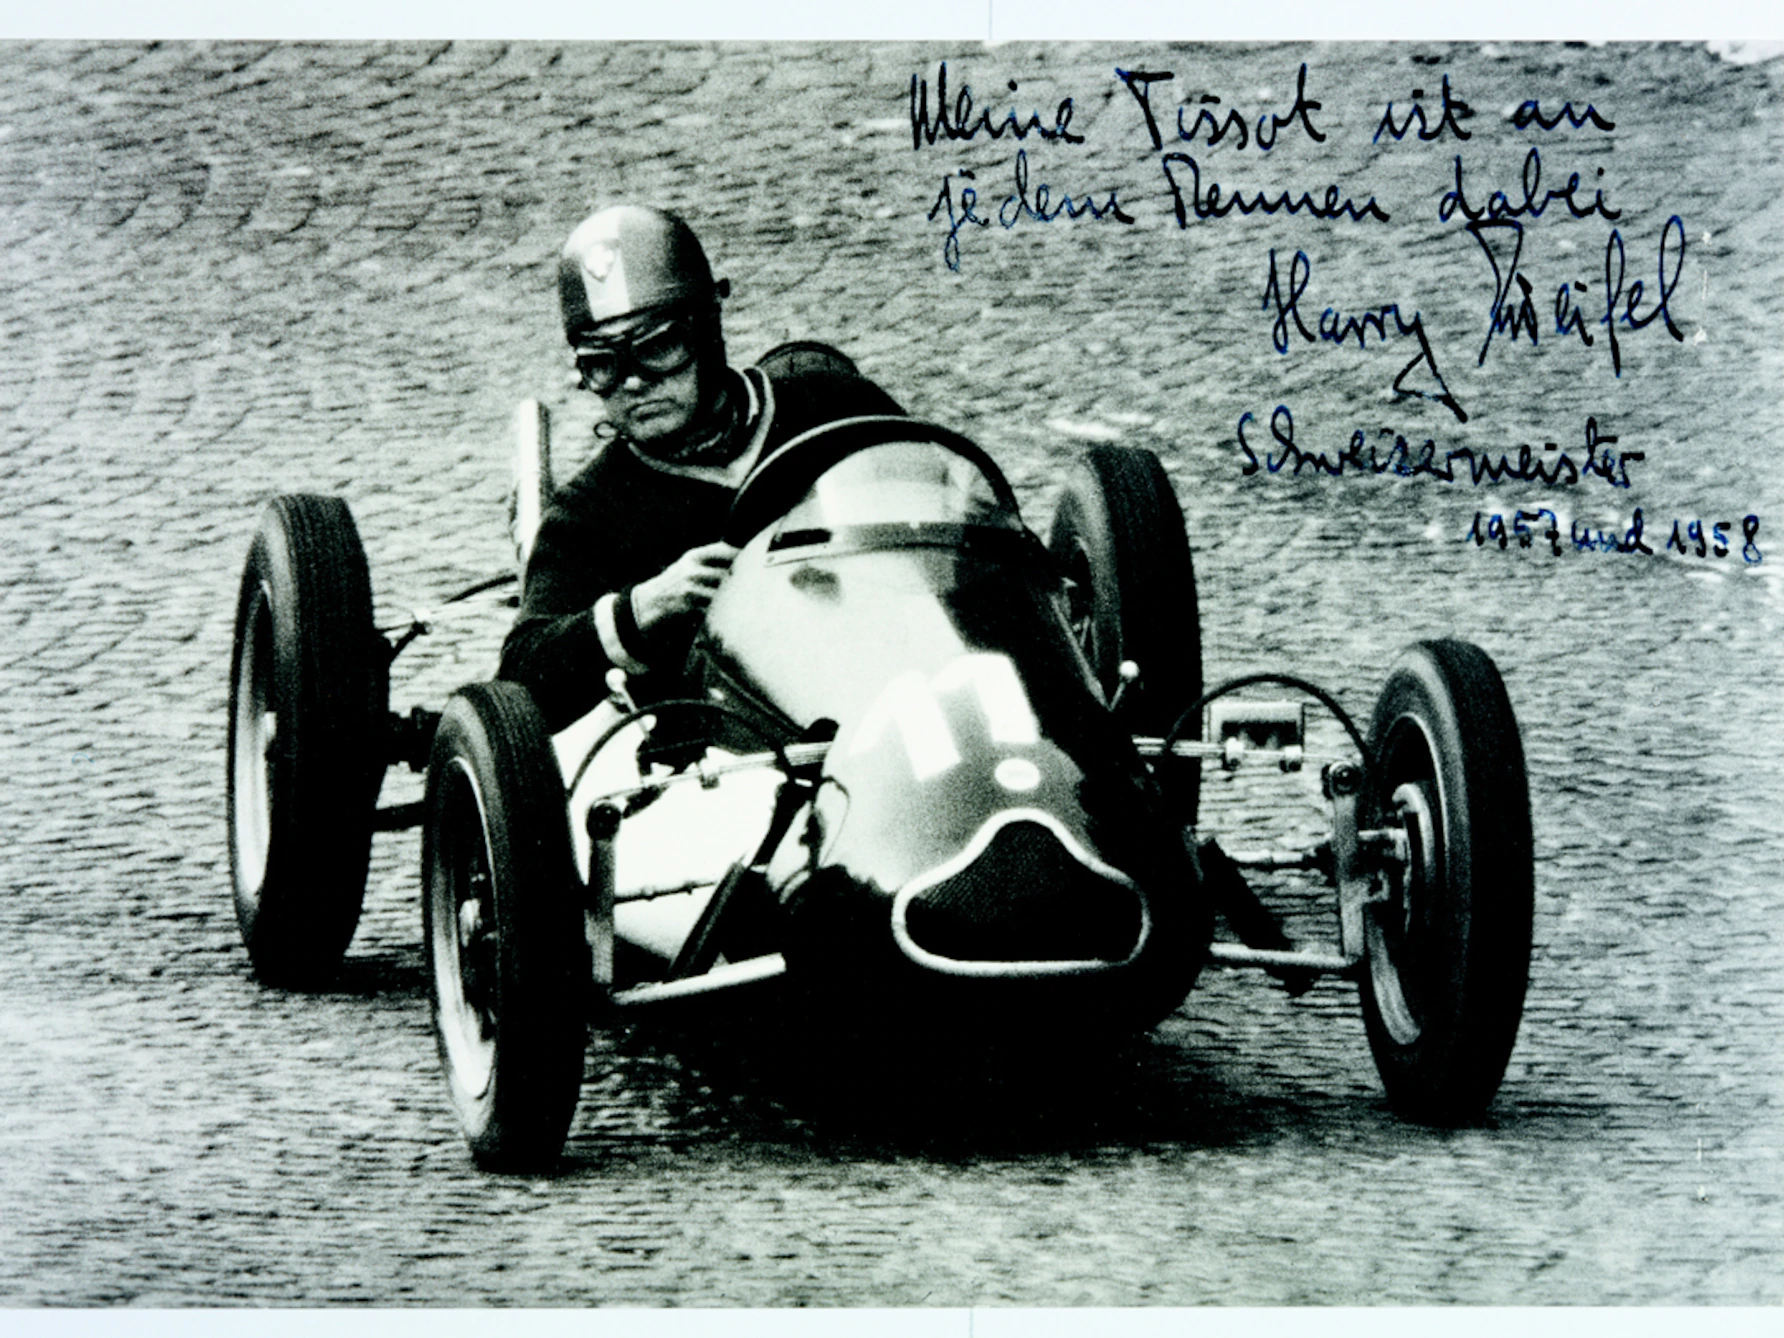 Meine Tissot ist an
jedem Rennen dabei
Harry Zweifel
Schweizermeister
1957 und 1958
11